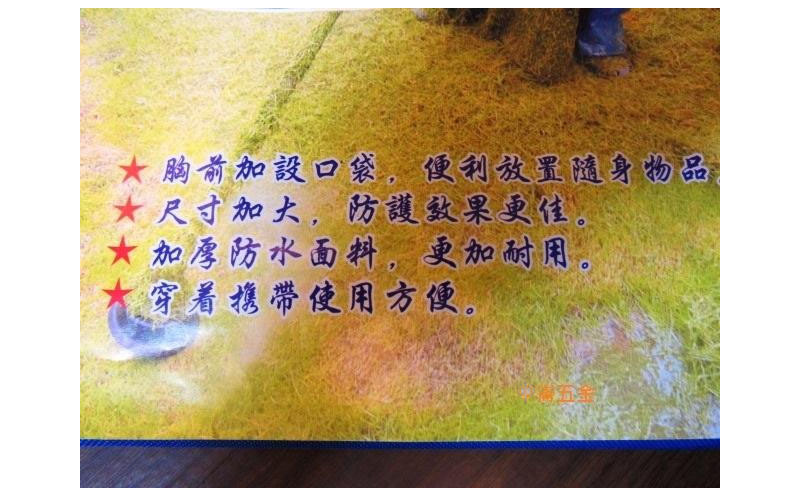 ★ 胸前加設口袋，便利放置隨身物品
★ 尺寸加大，防護效果更佳。
★ 加厚防水面料，更加耐用。
★ 穿着携帶使用方便。
五金